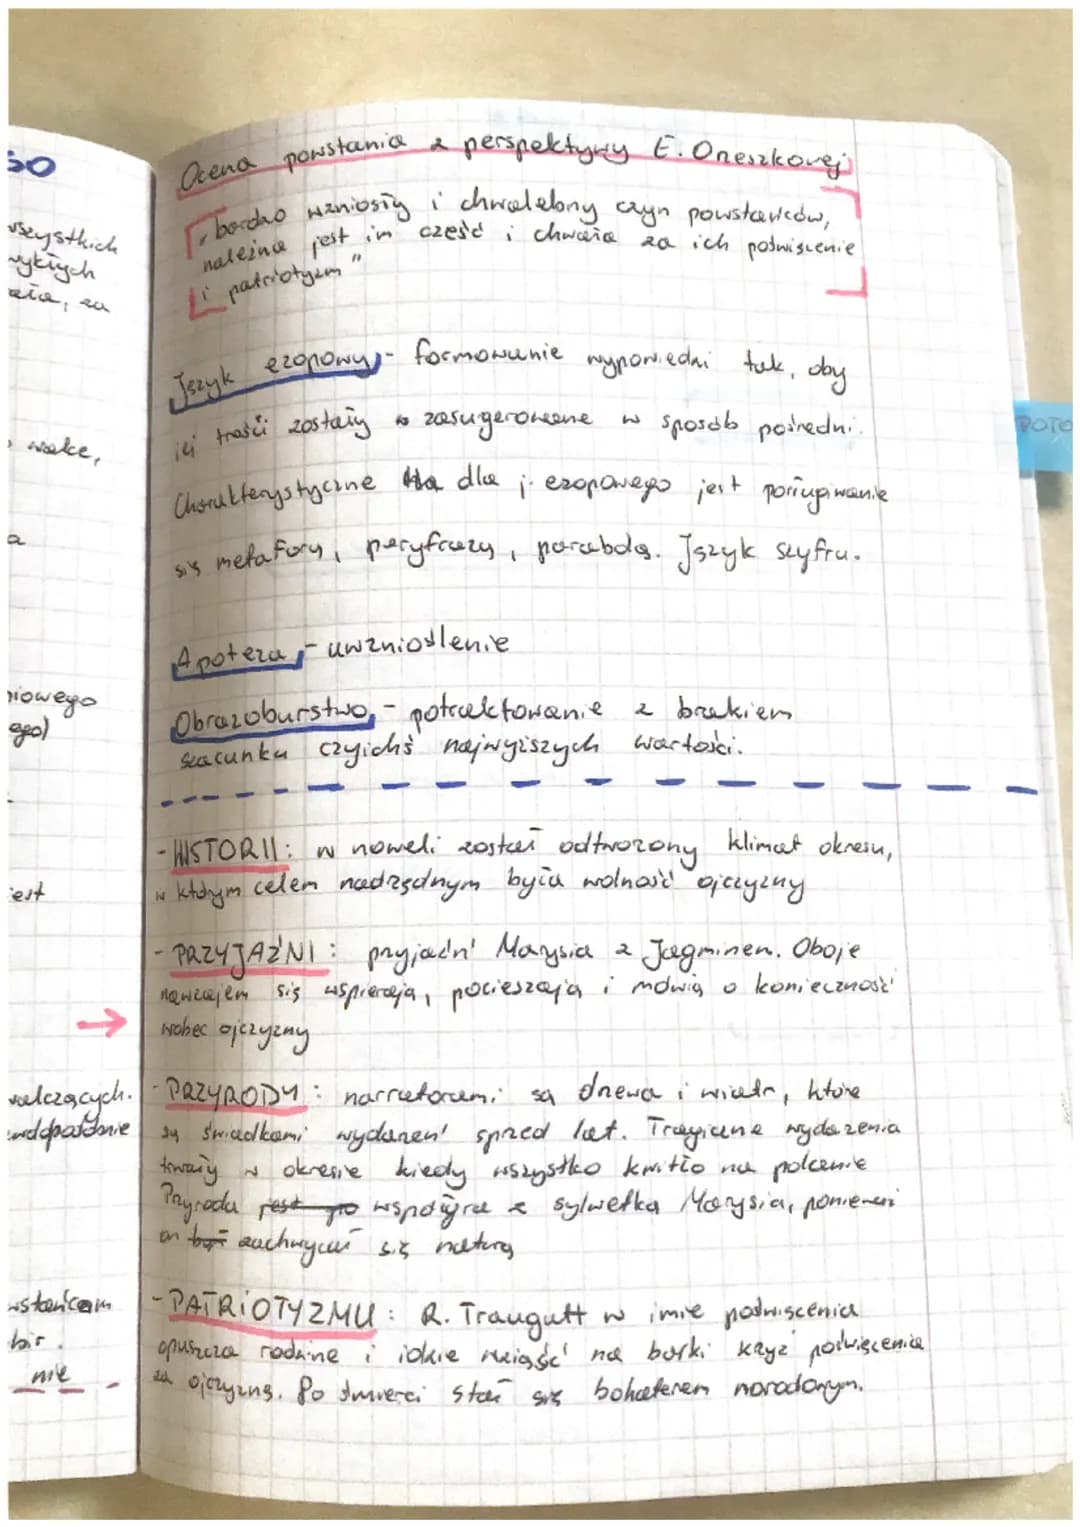 Ocena powstania z perspektywy E. Orzeszkowej
"bardzo wzniosły i chwalebny czyn powstańców,
należna jest im cześć i chwała za ich poświęcenie
i patriotyzm"
Język ezopowy - formowanie wypowiedni tak, aby
jej treści zostały zasugerowane w sposób pośredni.
Charakterystyczne dla j. ezopowego jest posługiwanie
się metafory, peryfrazy, parabolą. Język szyfru.
Apoteza - uwznioślenie
Obrazoburstwo - potraktowanie z brakiem
szacunku czyichś najwyższych wartości.
- HISTORII: w noweli został odtworzony klimat okresu,
w którym celem nadrzędnym była wolność ojczyzny
- PRZYJAŹNI: przyjaźń Marysia z Jagminem. Oboje
nawzajem się wspierają, pocieszają i mówią o konieczność
wobec ojczyzny
- PRZYRODY: narratorami są drzewa i wiatr, które
są świadkami wydarzeń sprzed lat. Tragiczne wydarzenia
trwały w okresie kiedy wszystko kwitło na polanie
Przyroda jest współgra z sylwetką Marysia, ponieważ
on był zachwycał się naturą
- PATRIOTYZMU: R. Traugutt w imie poświęcenia
opuszcza rodzinę i idzie wziąść na barki krzyż poświęcenia
za ojczyznę. Po śmierci stał się bohaterem narodowym.
wszystkich
za
walkę,
a
niowego
jest
walczących.
nie
POTO